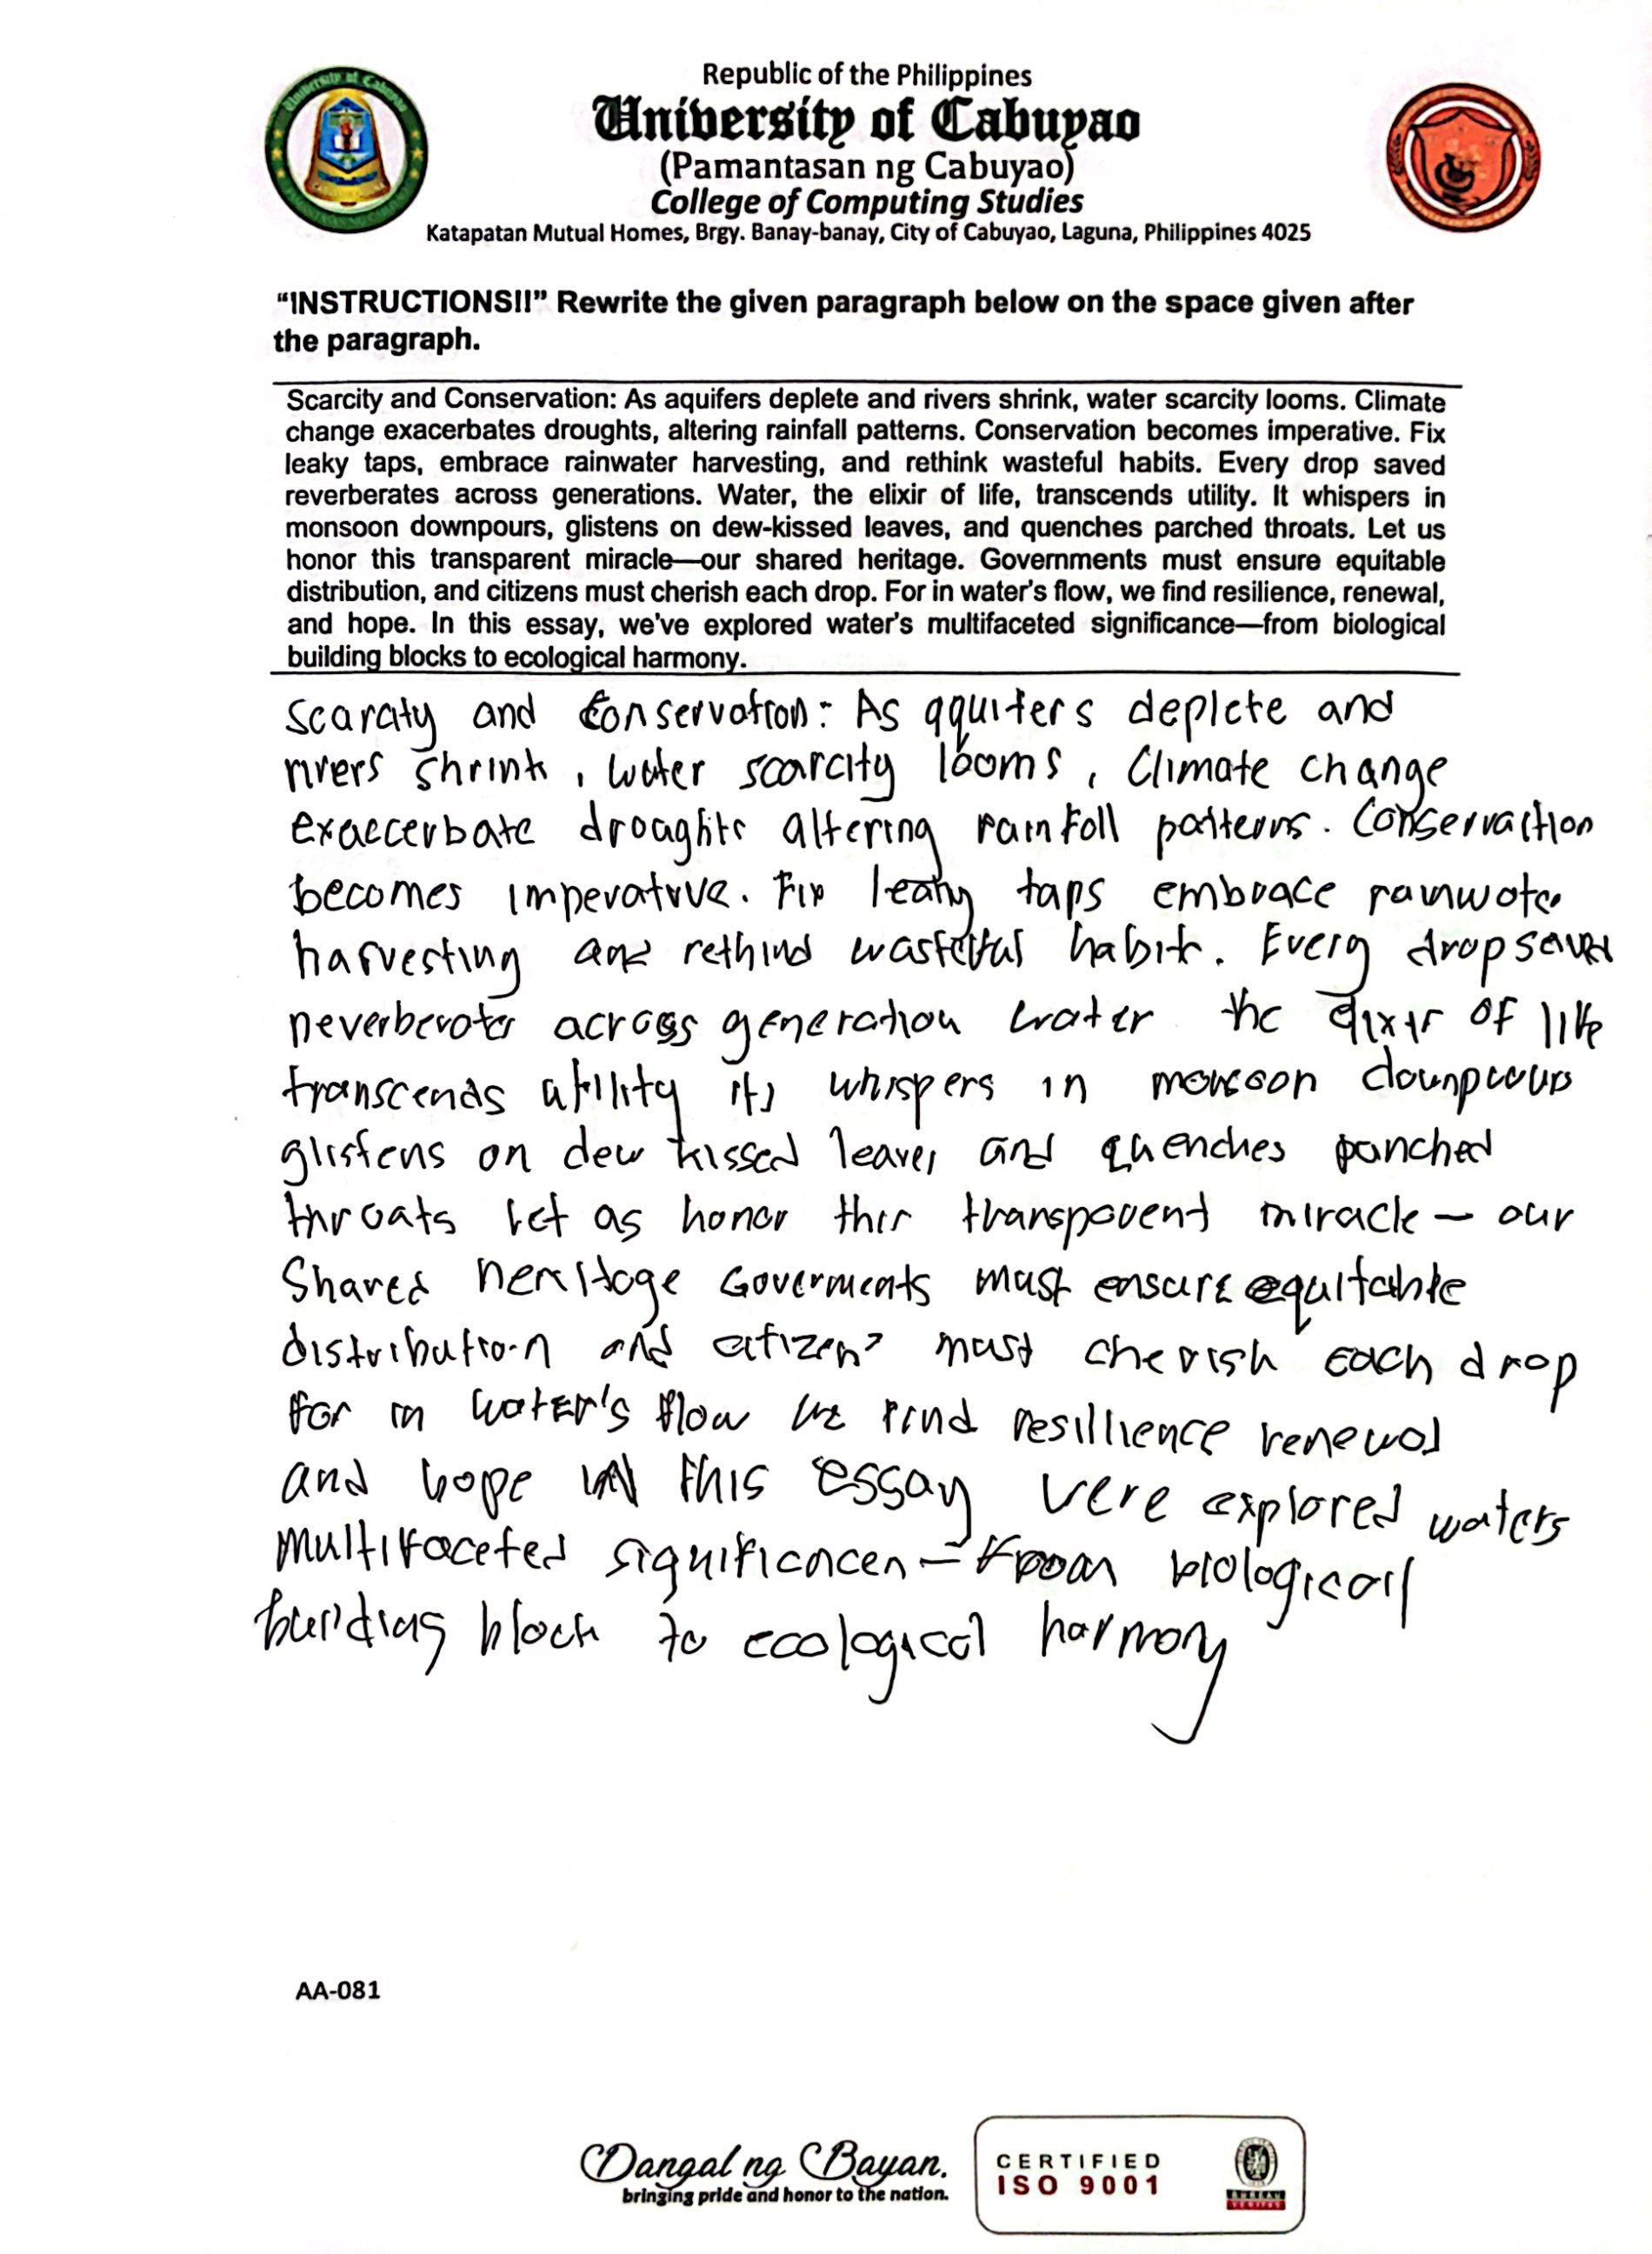 Republic of the Philippines
University of Cabuyao
(Pamantasan ng Cabuyao)
College of Computing Studies
Katapatan Mutual Homes, Brgy. Banay-banay, City of Cabuyao, Laguna, Philippines 4025
“INSTRUCTIONS!!” Rewrite the given paragraph below on the space given after
the paragraph.
Scarcity and Conservation: As aquifers deplete and rivers shrink, water scarcity looms. Climate
change exacerbates droughts, altering rainfall patterns. Conservation becomes imperative. Fix
leaky taps, embrace rainwater harvesting, and rethink wasteful habits. Every drop saved
reverberates across generations. Water, the elixir of life, transcends utility. It whispers in
monsoon downpours, glistens on dew-kissed leaves, and quenches parched throats. Let us
honor this transparent miracle—our shared heritage. Governments must ensure equitable
distribution, and citizens must cherish each drop. For in water’s flow, we find resilience, renewal,
and hope. In this essay, we’ve explored water’s multifaceted significance—from biological
building blocks to ecological harmony.
Scarcity and Conservation: As aquifers deplete and
rivers shrink, water scarcity looms, Climate change
exaccerbate droughts altering rainfall patterns. Conservation
becomes imperative. Fix leaky taps embrace rainwate
harvesting and rethink wasteful habit. Every drop saved
reverberates across generation water the elixir of life
transcends utility its whispers in monsoon downpours
glistens on dew kissed leaves and quenches panched
throats let us honor this transparent miracle — our
shared heritage Goverments must ensure equitable
distribution and citizens must cherish each drop
for in water's flow we find resillience renewal
and hope in this essay were explored waters
multifaceted significancen — from biological
building block to ecological harmony
AA-081
Dangal ng Bayan.
bringing pride and honor to the nation.
CERTIFIED
ISO 9001
BUREAU
VERITAS